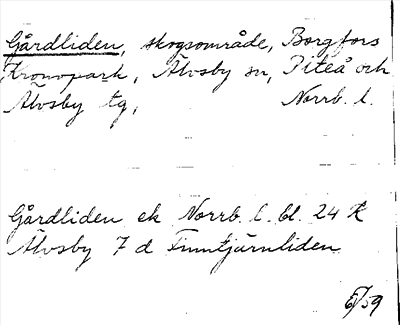 Gårdliden, skogsområde, Borgfors
Kronopark, Älvsby sn, Piteå och
Älvsby tg, Norrb. l.
Gårdliden ek Norrb. l. bl. 24
Älvsby 7 d Finntjärnliden